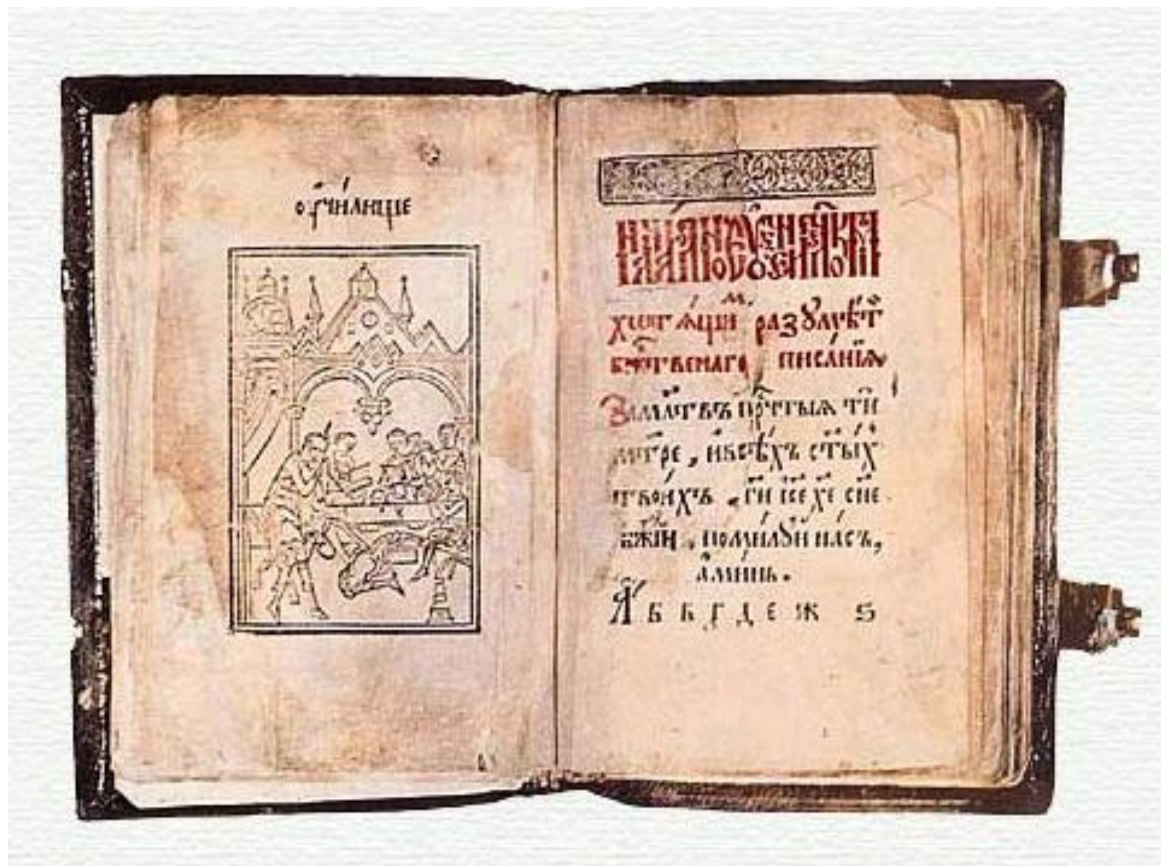 ᲂу҆чи́лище
хотѧ́щиⷨ разꙋмѣ́ти
бжⷭ҇твенаго писанїѧ
За млт҃въ прⷱ҇тыѧ ти
мт҃ре, и҆ всѣ́хъ ст҃ы́хъ
твои́хъ, гд҇и і҆се хе҇ сн҃е
бж҃їи, поми́лꙋи на́съ,
а҆ми́нь.
А҆ б в г д е ж ѕ